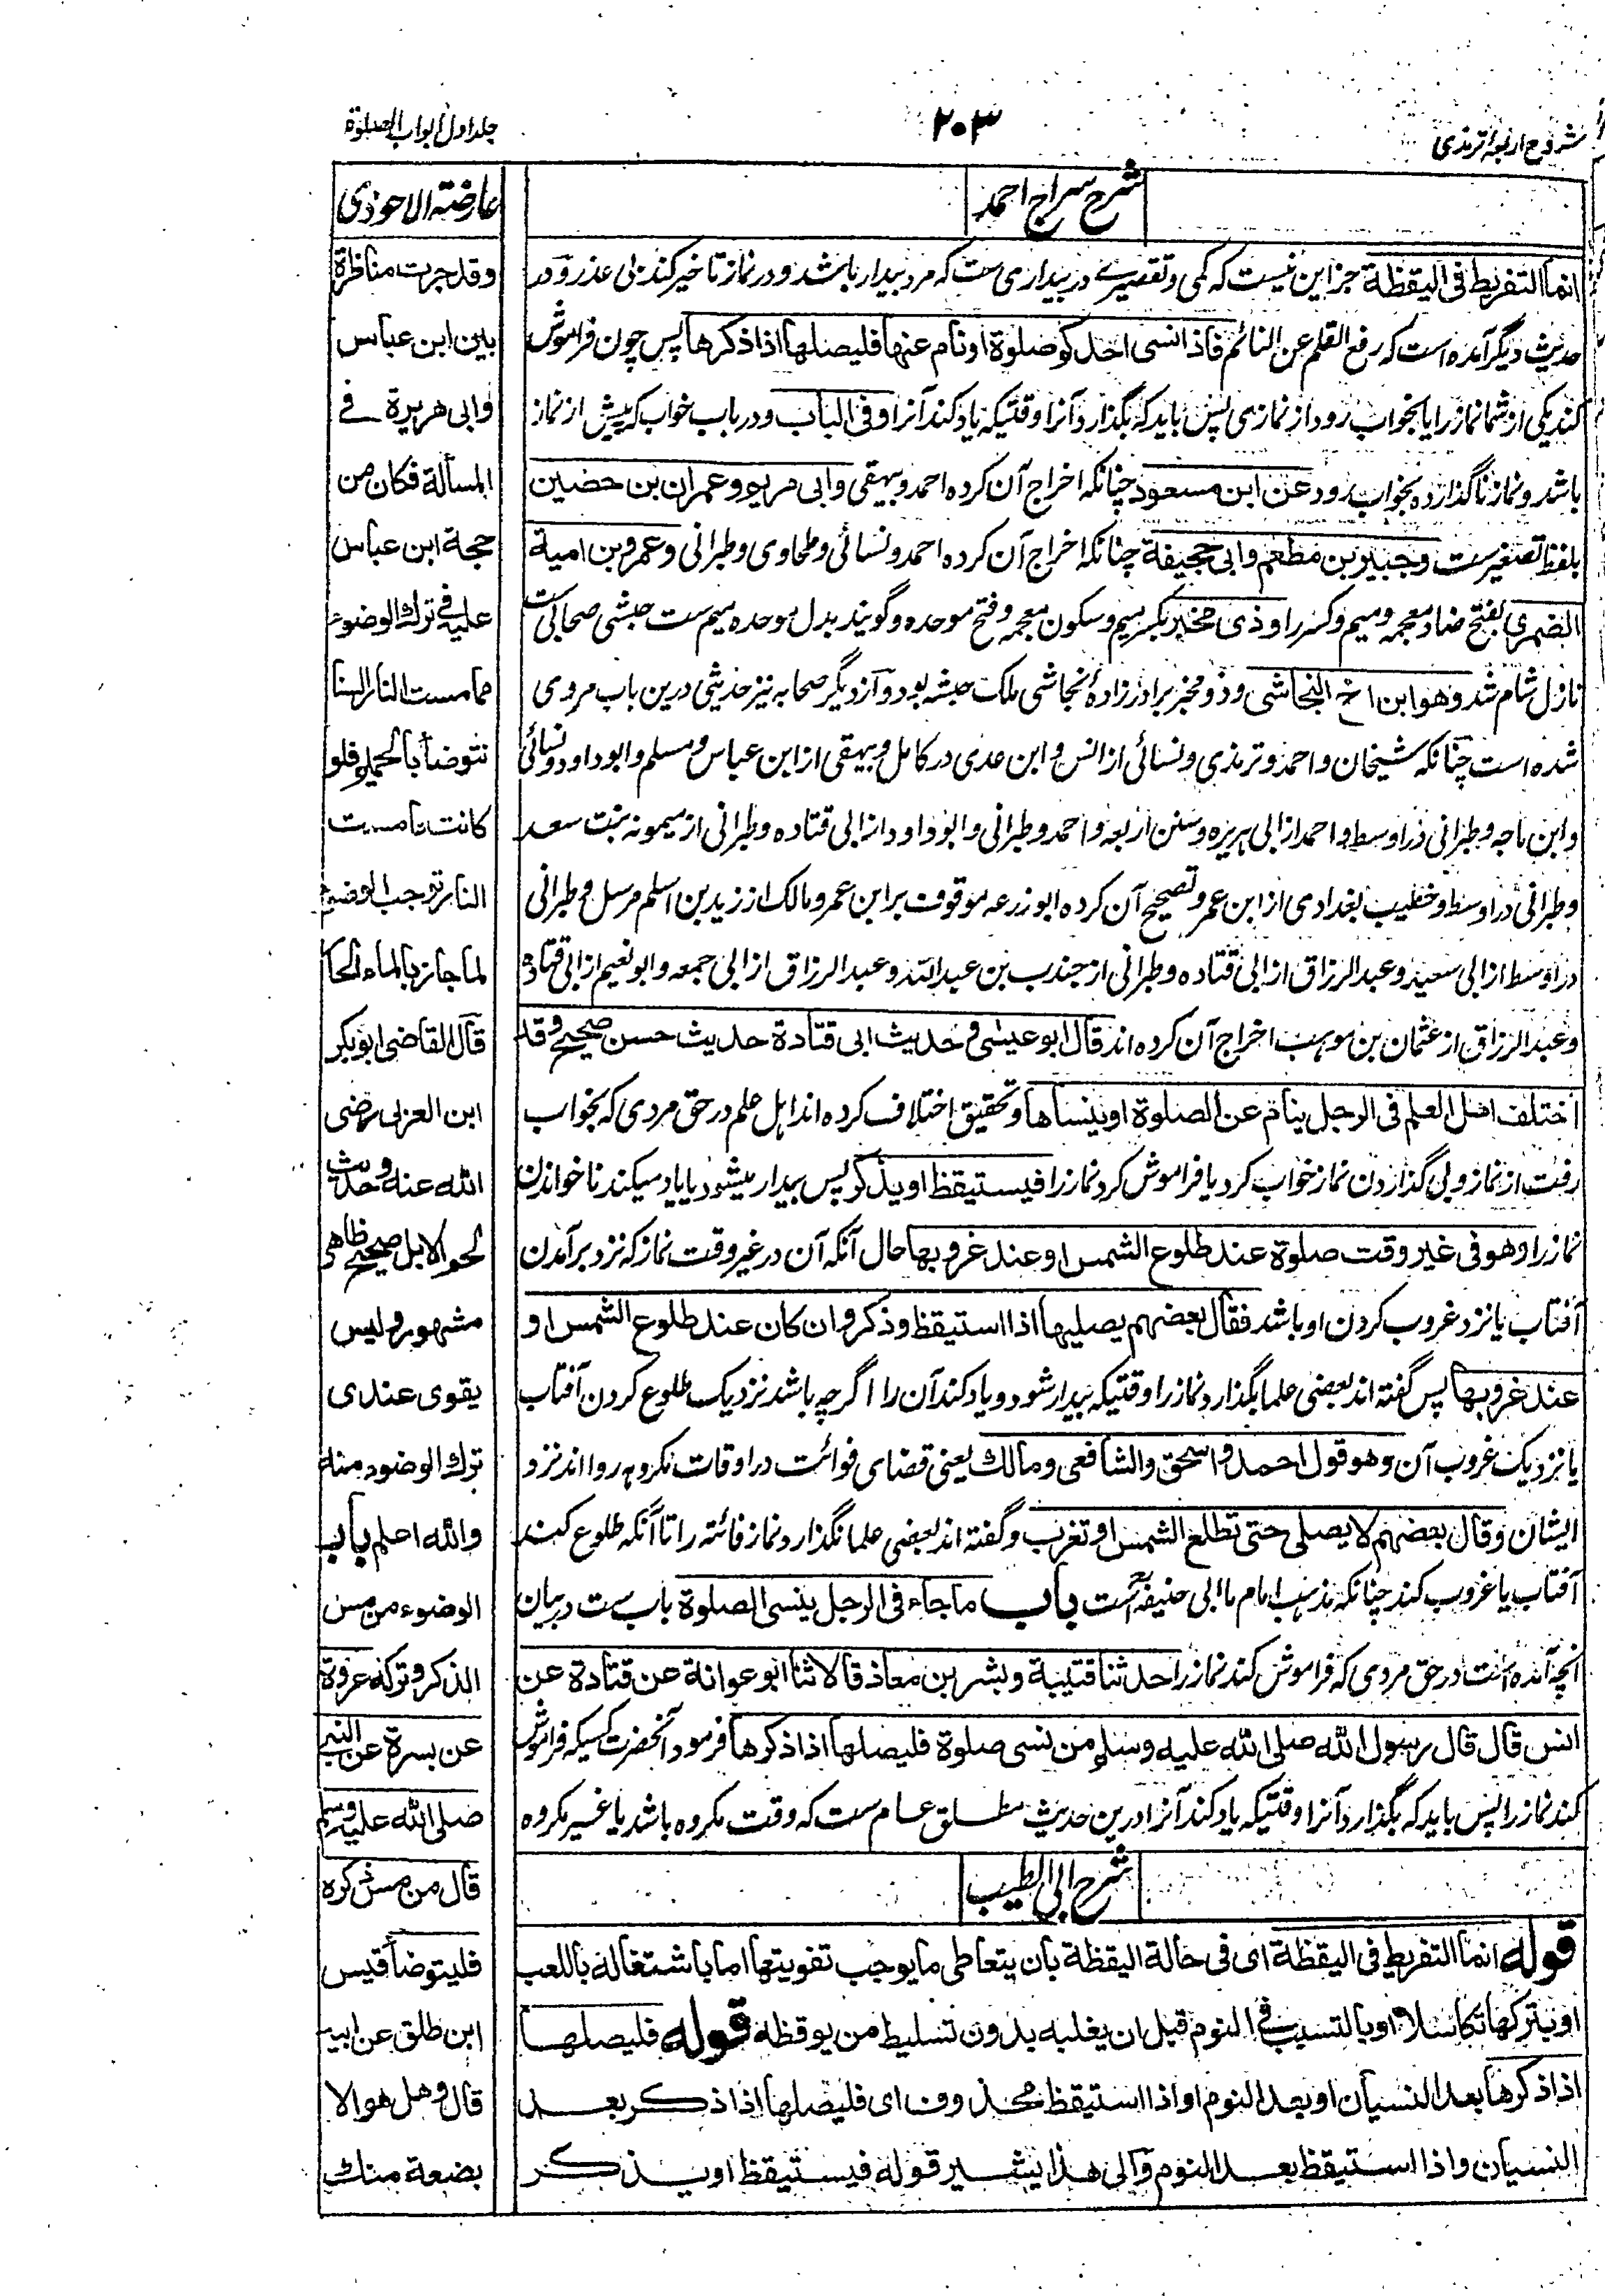 شروح اربعہ ترمذی
۲۰۳
جلد اول ابواب الصلوة
شرح سراج احمد
انما التفریط فی الیقظة جز این نیست که کمی و تقصیرے در بیداری ست که مرد بیدار باشد و در نماز تاخیر کند بی عذر و در
حدیث دیگر آمده است که رفع القلم عن النائم فاذا نسی احدکم صلوة او نام عنها فلیصلها اذا ذکرها پس چون فراموش
کند یکی از شما نماز را یا بخواب رود از نمازی پس باید که بگذارد آنرا وقتیکه یاد کند آنرا وفی الباب و در باب خواب که پیش از نماز
باشد و نماز ناگذارده بخواب رود عن ابن مسعود چنانکه اخراج آن کرده احمد و بیهقی وابی مریم وعمران بن حصین
بلفظ تصغیرست وجبیر بن مطعم وابی جحیفة چنانکه اخراج آن کرده احمد و نسائی و طحاوی و طبرانی وعمرو بن امیة
الضمری بفتح ضاد معجمه و میم و کسر را وذی مخبر بکسر میم و سکون معجمه و فتح موحده و گویند بدل موحده میم ست حبشی صحابی ست
نازل شام شد وهو ابن اخ النجاشی و ذو مخبر برادرزادهٔ نجاشی ملک حبشه بود و از دیگر صحابه نیز حدیثی درین باب مروی
شده است چنانکه شیخان و احمد و ترمذی و نسائی از انس و ابن عدی در کامل و بیهقی از ابن عباس و مسلم و ابو داود و نسائی
و ابن ماجه و طبرانی در اوسط و احمد از ابی هریره و سنن اربعه و احمد و طبرانی و ابو داود از ابی قتاده و طبرانی از میمونه بنت سعد
و طبرانی در اوسط و خطیب بغدادی از ابن عمر و تصحیح آن کرده ابو زرعه موقوف بر ابن عمر و مالک از زید بن اسلم مرسل و طبرانی
در اوسط از ابی سعید و عبد الرزاق از ابی قتاده و طبرانی از جندب بن عبد الله و عبد الرزاق از ابی جمعه و ابو نعیم از ابی قتاده
و عبد الرزاق از عثمان بن موهب اخراج آن کرده اند قال ابو عیسی وحدیث ابی قتادة حدیث حسن صحیح وقد
اختلف اهل العلم فی الرجل ینام عن الصلوة او ینساها و تحقیق اختلاف کرده اند اهل علم در حق مردی که بخواب
رفت از نماز و بی گذاردن نماز خواب کرد یا فراموش کرد نماز را فیستیقظ او یذکر پس بیدار میشود یا یاد میکند ناخواندن
نماز را وهو فی غیر وقت صلوة عند طلوع الشمس او عند غروبها حال آنکه آن در غیر وقت نماز که نزد برآمدن
آفتاب یا نزد غروب کردن او باشد فقال بعضهم یصلیها اذا استیقظ وذکر وان کان عند طلوع الشمس او
عند غروبها پس گفته اند بعضی علما بگذارد نماز را وقتیکه بیدار شود و یاد کند آن را اگرچه باشد نزدیک طلوع کردن آفتاب
یا نزدیک غروب آن وهو قول احمد واسحق والشافعی ومالک یعنی قضای فوائت در اوقات مکروہہ روا اند نزد
ایشان وقال بعضهم لا یصلی حتی تطلع الشمس او تغرب و گفته اند بعضی علما نگذارد نماز فائته را تا آنکه طلوع کند
آفتاب یا غروب کند چنانکه مذهب امام ما ابی حنیفه است باب ما جاء فی الرجل ینسی الصلوة باب ست در بیان
آنچه آمده است در حق مردی که فراموش کند نماز را حدثنا قتیبة وبشر بن معاذ قالا ثنا ابو عوانة عن قتادة عن
انس قال قال رسول الله صلی الله علیه وسلم من نسی صلوة فلیصلها اذا ذکرها فرمود آنحضرت کسیکه فراموش
کند نماز را پس باید که بگذارد آنرا وقتیکه یاد کند آنرا درین حدیث مطلق عام ست که وقت مکروه باشد یا غیر مکروه
شرح ابی الطیب
قوله انما التفریط فی الیقظة ای فی حالة الیقظة بان یتعاطی ما یوجب تفویتها اما باشتغاله باللعب
او بترکها تکاسلا او بالتسبب فی النوم قبل ان یغلبه بدون تسلیط من یوقظه قوله فلیصلها
اذا ذکرها بعد النسیان او بعد النوم او اذا استیقظ محذوف ای فلیصلها اذا ذکر بعد
النسیان واذا استیقظ بعد النوم والی هذا یشیر قوله فیستیقظ او یذکر
عارضة الاحوذی
وقد جرت مناظرة
بین ابن عباس
وابی هریرة فی
المسألة فکان من
حجة ابن عباس
علیه فی ترک الوضوء
مما مست النار السنا
نتوضأ بالحمیم فلو
کانت ما مست
النار توجب الوضوء
لما جاز بالماء الحار
قال القاضی ابو بکر
ابن العربی رضی
الله عنه وحدیث
لحم الابل صحیح ظاهر
مشهور ولیس
یقوی عندی
ترک الوضوء منه
والله اعلم باب
الوضوء من مس
الذکر وترکه عروة
عن بسرة عن النبی
صلی الله علیه وسلم
قال من مس ذکره
فلیتوضأ قیس
ابن طلق عن ابیه
قال وهل هو الا
بضعة منک